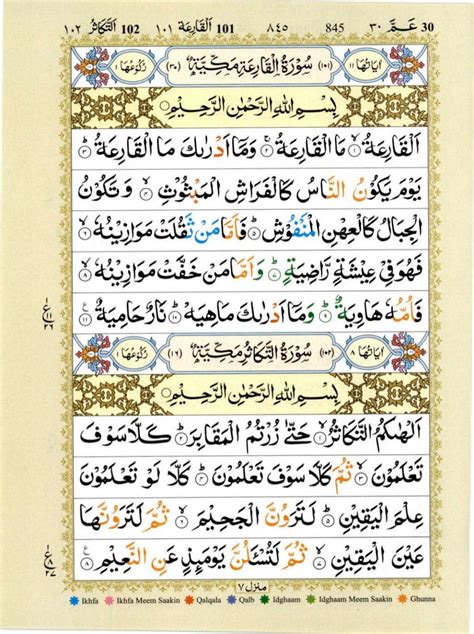 عَمَّ ٣٠ 30 845 ٨٤٥ اَلْقَارِعَة ١٠١ 101 اَلتَّكَاثُر ١٠٢ 102
اٰيَاتُهَا ١١ (١٠١) سُوْرَةُ الْقَارِعَةِ مَكِّيَّةٌ (٣٠) رُكُوْعُهَا ١
بِسْمِ اللّٰهِ الرَّحْمٰنِ الرَّحِيْمِ
اَلْقَارِعَةُ ۙ۝١ مَا الْقَارِعَةُ ۚ۝٢ وَمَاۤ اَدْرٰىكَ مَا الْقَارِعَةُ ؕ۝٣
يَوْمَ يَكُوْنُ النَّاسُ كَالْفَرَاشِ الْمَبْثُوْثِ ۙ۝٤ وَتَكُوْنُ
الْجِبَالُ كَالْعِهْنِ الْمَنْفُوْشِ ؕ۝٥ فَاَمَّا مَنْ ثَقُلَتْ مَوَازِيْنُهٗ ۙ۝٦
فَهُوَ فِيْ عِيْشَةٍ رَّاضِيَةٍ ؕ۝٧ وَاَمَّا مَنْ خَفَّتْ مَوَازِيْنُهٗ ۙ۝٨
فَاُمُّهٗ هَاوِيَةٌ ؕ۝٩ وَمَاۤ اَدْرٰىكَ مَاهِيَهْ ؕ۝١٠ نَارٌ حَامِيَةٌ ۠۝١١
اٰيَاتُهَا ٨ (١٠٢) سُوْرَةُ التَّكَاثُرِ مَكِّيَّةٌ (١٦) رُكُوْعُهَا ١
بِسْمِ اللّٰهِ الرَّحْمٰنِ الرَّحِيْمِ
اَلْهٰىكُمُ التَّكَاثُرُ ۙ۝١ حَتّٰى زُرْتُمُ الْمَقَابِرَ ؕ۝٢ كَلَّا سَوْفَ
تَعْلَمُوْنَ ۙ۝٣ ثُمَّ كَلَّا سَوْفَ تَعْلَمُوْنَ ؕ۝٤ كَلَّا لَوْ تَعْلَمُوْنَ
عِلْمَ الْيَقِيْنِ ؕ۝٥ لَتَرَوُنَّ الْجَحِيْمَ ۙ۝٦ ثُمَّ لَتَرَوُنَّهَا
عَيْنَ الْيَقِيْنِ ۙ۝٧ ثُمَّ لَتُسْـَٔلُنَّ يَوْمَئِذٍ عَنِ النَّعِيْمِ ۠۝٨
منزل ٧
Ikhfa Ikhfa Meem Saakin Qalqala Qalb Idghaam Idghaam Meem Saakin Ghunna